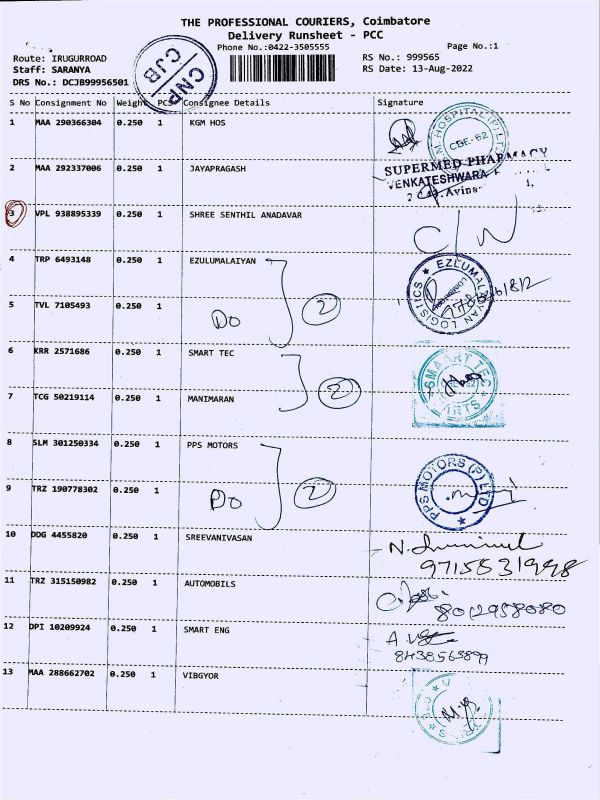 THE PROFESSIONAL COURIERS, Coimbatore
Delivery Runsheet - PCC
Phone No.:0422-3505555 Page No.:1
Route: IRUGURROAD RS No.: 999565
Staff: SARANYA RS Date: 13-Aug-2022
DRS No.: DCJB99956501
CNP
CJB
S No Consignment No Weight PCS Consignee Details Signature
1 MAA 290366304 0.250 1 KGM HOS
HOSPITAL (P) LTD
CBE-62
2 MAA 292337006 0.250 1 JAYAPRAGASH
SUPERMED PHARMACY
VENKATESHWARA
3 VPL 938895339 0.250 1 SHREE SENTHIL ANADAVAR
C/N
4 TRP 6493148 0.250 1 EZULUMALAIYAN
EZLUMALAIYAN LOGISTICS
5 TVL 7105493 0.250 1
Do 2
6 KRR 2571686 0.250 1 SMART TEC
SMAART TEC
ARTS
7 TCG 50219114 0.250 1 MANIMARAN
2
8 SLM 301250334 0.250 1 PPS MOTORS
PPS MOTORS (P) LTD
9 TRZ 190778302 0.250 1
Do 2
10 DDG 4455820 0.250 1 SREEVANIVASAN
9715831998
11 TRZ 315150982 0.250 1 AUTOMOBILS
8012958080
12 DPI 10209924 0.250 1 SMART ENG
13 MAA 288662702 0.250 1 VIBGYOR